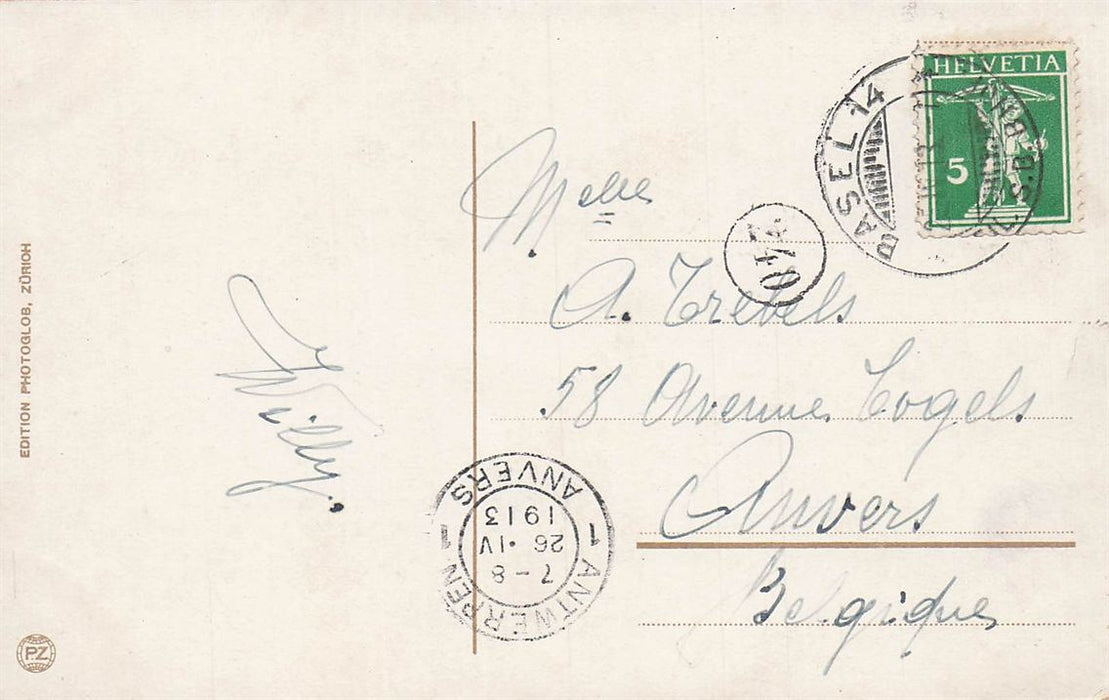 EDITION PHOTOGLOB, ZÜRICH
PZ
Willy.
BASEL 14
HELVETIA
5
Melle
A. Trebels
58 Avenue Cogels
Anvers
Belgique
ANVERS
1913
26·IV
7-8
1 ANTWERPEN 1